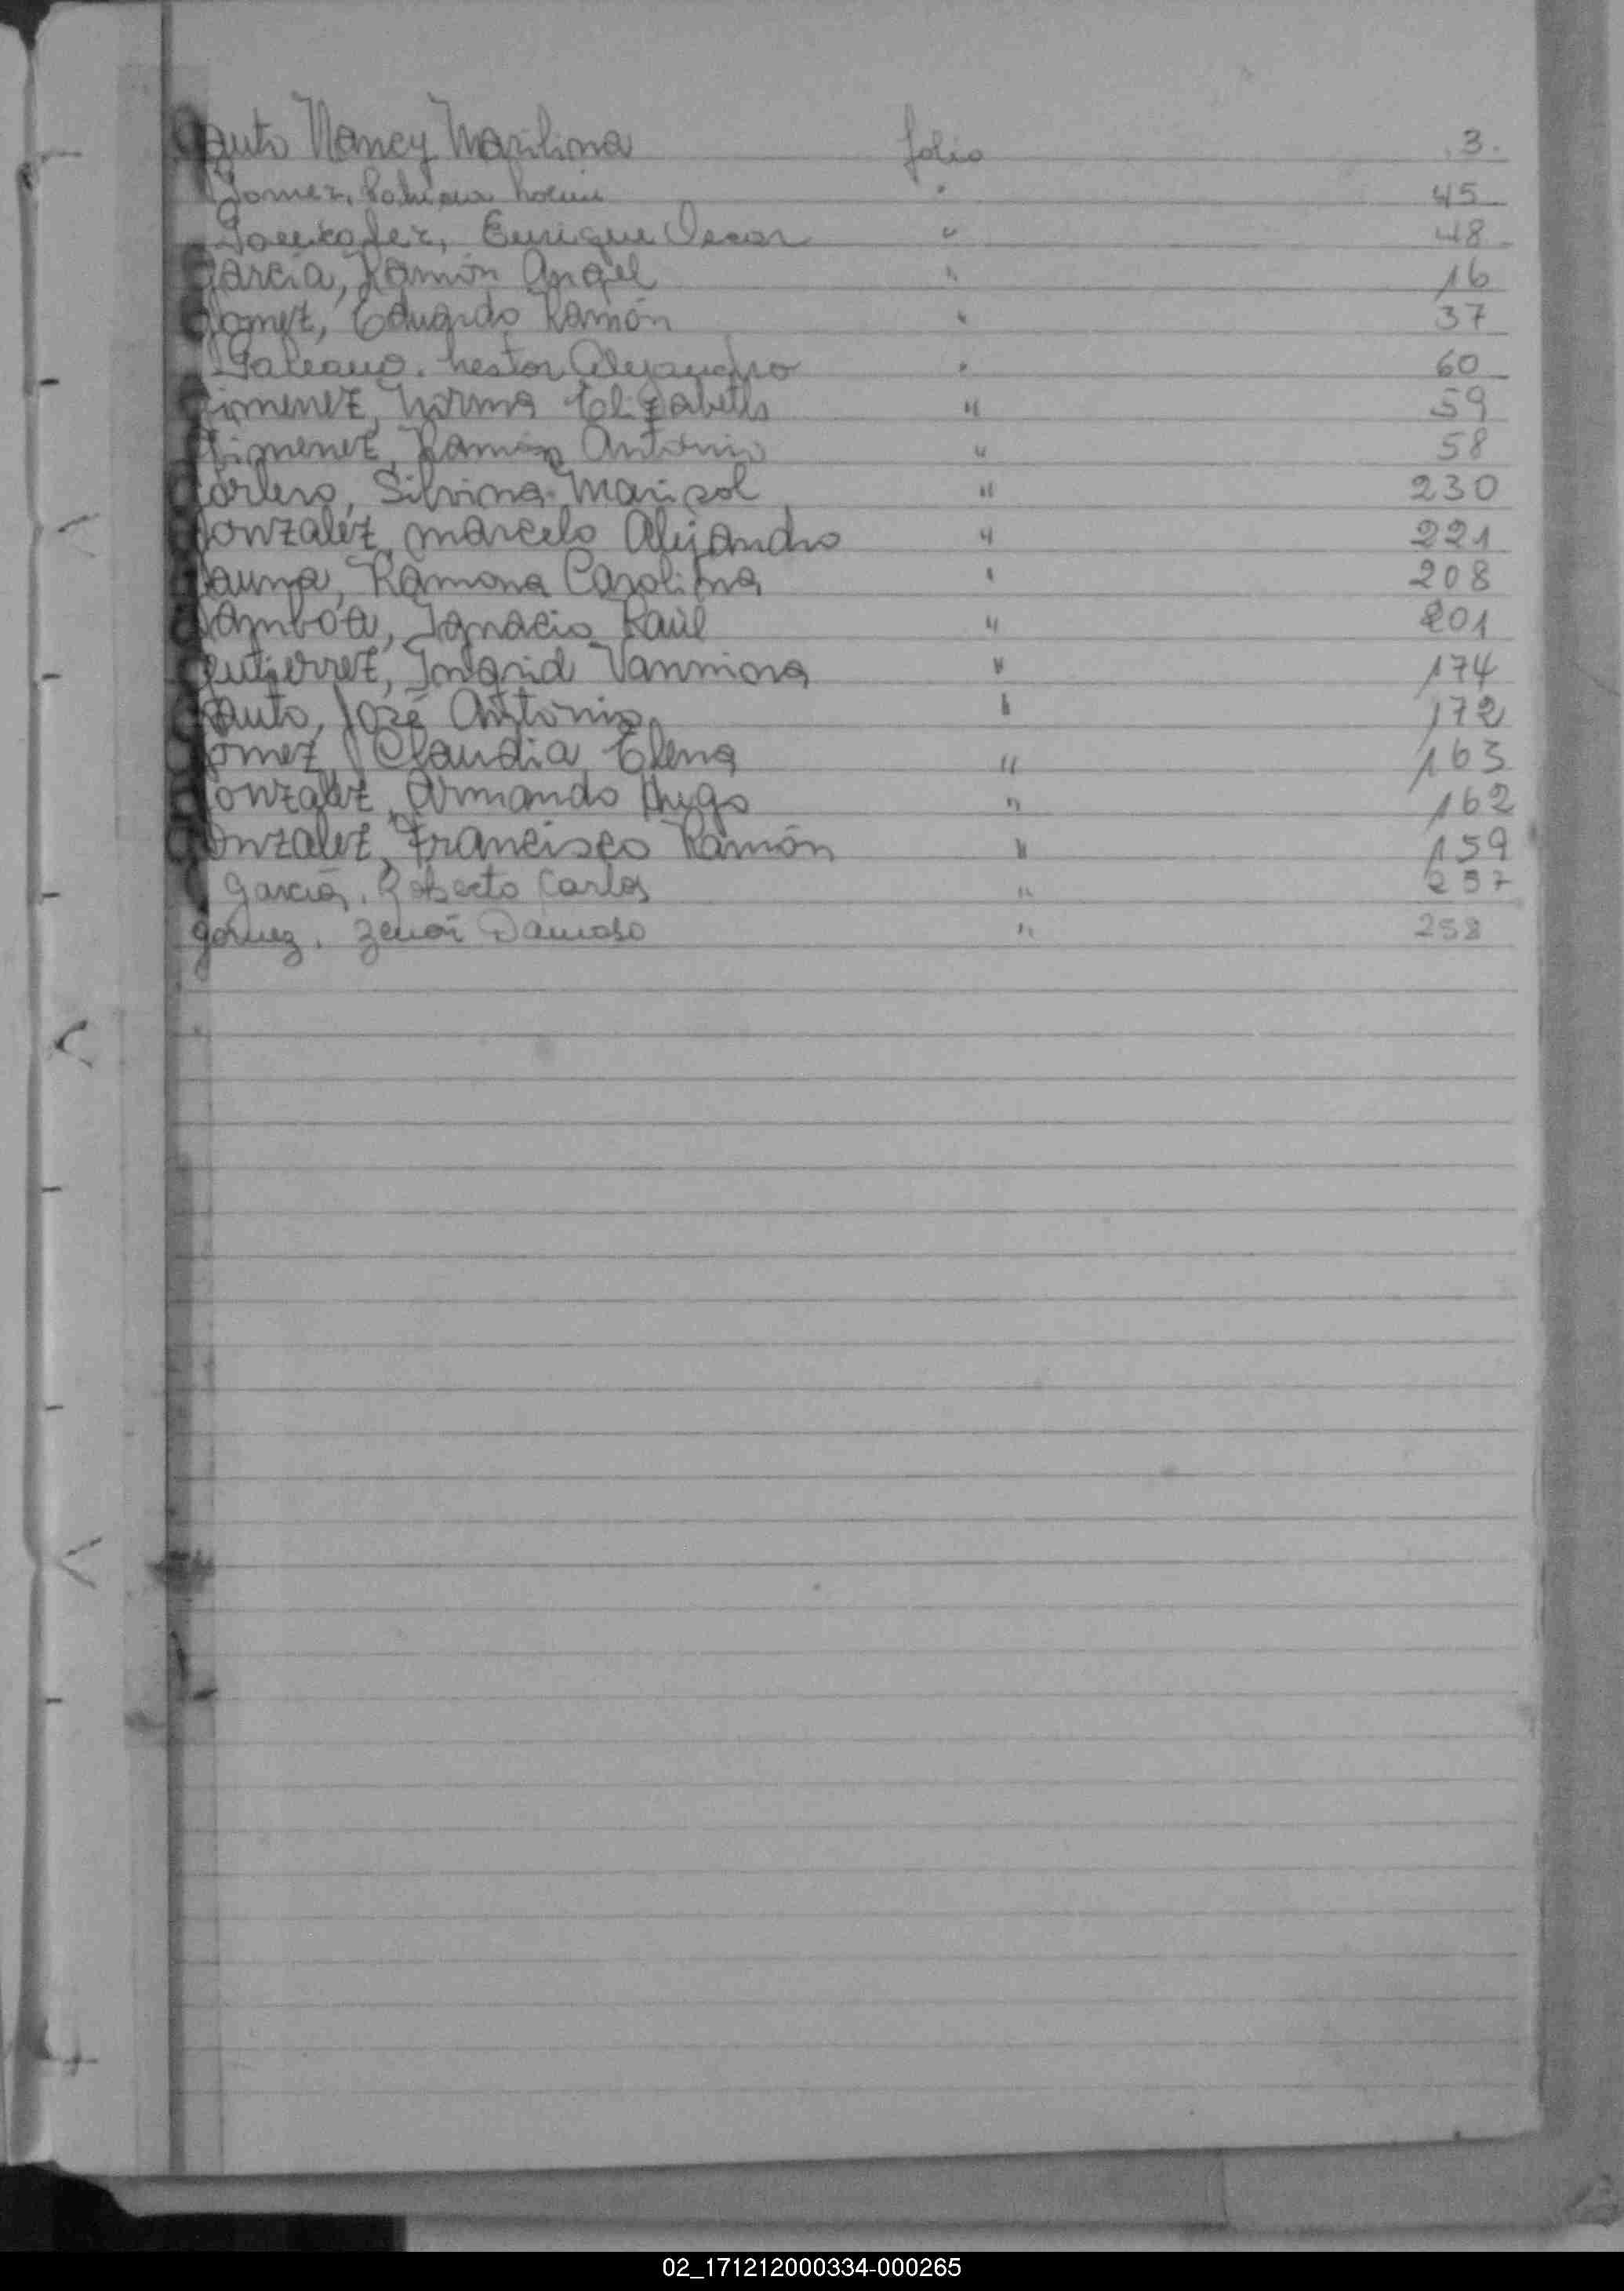 Gauto Nancy Marilina folio 3.
Gomez, " 45
Enrique Oscar " 48
Garcia, Ramón Angel " 16
Gomez, Eduardo Ramón " 37
Galeano. Nestor Alejandro " 60
Gimenez, Norma Elizabeth " 59
Gimenez, Ramón Antonio " 58
Silvina Marisol " 230
Gonzalez, Marcelo Alejandro " 221
Gauna, Ramona Carolina " 208
Gamboa, Ignacio Raúl " 201
Gutierrez, Ingrid Vannina " 174
Gauto, José Antonio " 172
Gomez, Claudia Elena " 163
Gonzalez, Armando Hugo " 162
Gonzalez, Francisco Ramón " 159
Garcia, Roberto Carlos " 257
Gomez, Zenón Damaso " 258
02_171212000334-000265